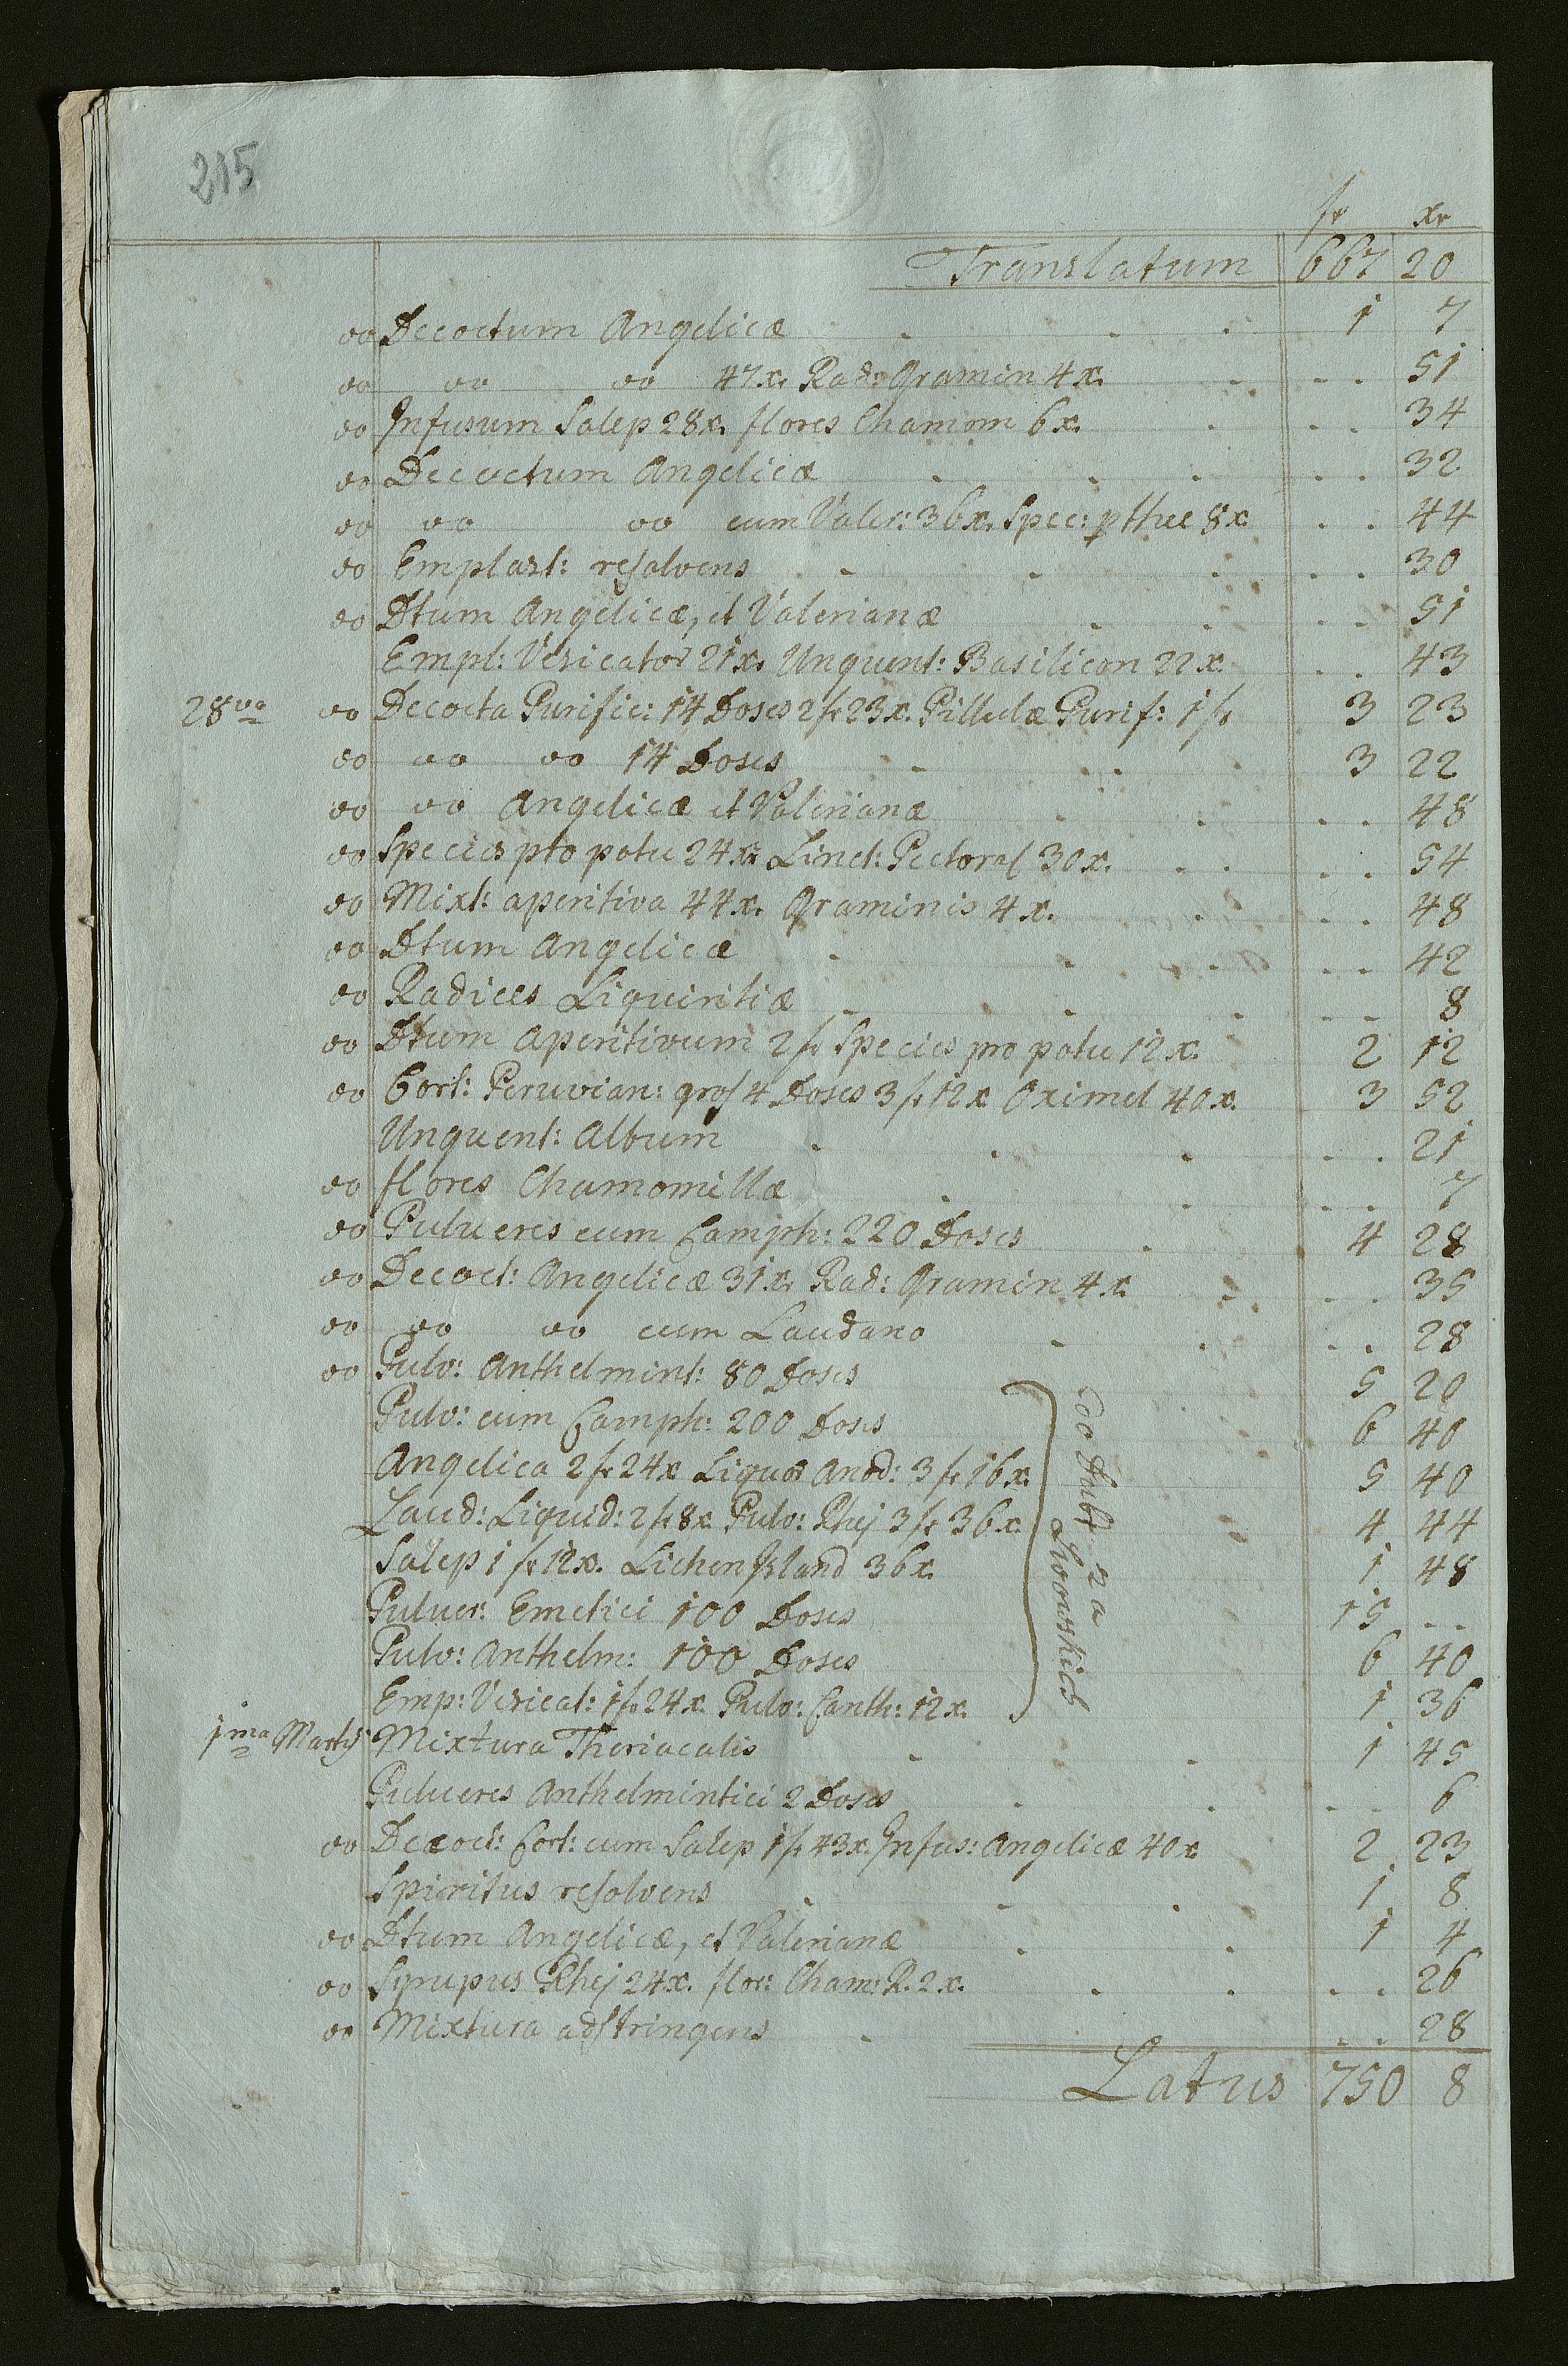 215
fr xr
Translatum 667 20
oo Decoctum Angelicæ 1 7
oo oo oo 47x. Rad: Gramin 4x. 51
oo Infusum Salep 28x. flores Chamom 6x. 34
oo Decoctum Angelicæ 32
oo oo oo cum Valer: 36x. Spec: p thee 8x 44
oo Emplast: resolvens 30
oo Dtum Angelicæ, et Valerianæ 51
Empl: Vesicator 21x. Unguent: Basilicon 22x. 43
28va oo Decocta Purific: 14 Doses 2fr 23x. Pillulæ Purif: 1fr 3 23
oo oo oo 14 Doses 3 22
oo oo Angelicæ et Valerianæ 48
oo Species pro potu 24x. Linct: Pectoral 30x. 54
oo Mixt: aperitiva 44x. Graminis 4x. 48
oo Dtum Angelicæ 42
oo Radices Liquiritiæ 8
oo Dtum Aperitivum 2fr Species pro potu 12x. 2 12
oo Cort: Peruvian: gros 4 Doses 3fr 12x Oximel 40x. 3 52
Unguent: Album 21
oo flores Chamomillæ 7
oo Pulueres cum Camph: 220 Doses 4 28
oo Decoct: Angelicæ 31x. Rad: Gramin 4x. 35
oo oo oo cum Laudano 28
oo Pulv: Anthelmint: 80 Doses 5 20
Pulv: cum Camph: 200 Doses 6 40
Angelica 2fr 24x Liquor Anod: 3fr 16x. 5 40
Laud: Liquid: 2fr 8x. Pulv: Rhej 3fr 36x. 4 44
Salep 1fr 12x. Lichen Island 36x. 1 48
Puluer: Emetici 100 Doses 15
Pulv: Anthelm: 100 Doses 6 40
Emp: Vesicat: 1fr 24x. Pulv: Canth: 12x. 1 36
do Dubr za
Lwowskich
1ma Martij Mixtura Theriacalis 1 45
Pulueres Anthelmintici 2 Doses 6
oo Decoct: Cort: cum Salep 1fr 43x. Infus: Angelicæ 40x 2 23
Spiritus resolvens 1 8
oo Dtum Angelicæ, et Valerianæ 1 4
oo Syrupus Rhej 24x. flor: Cham: R. 2x. 26
oo Mixtura adstringens 28
Latus 750 8